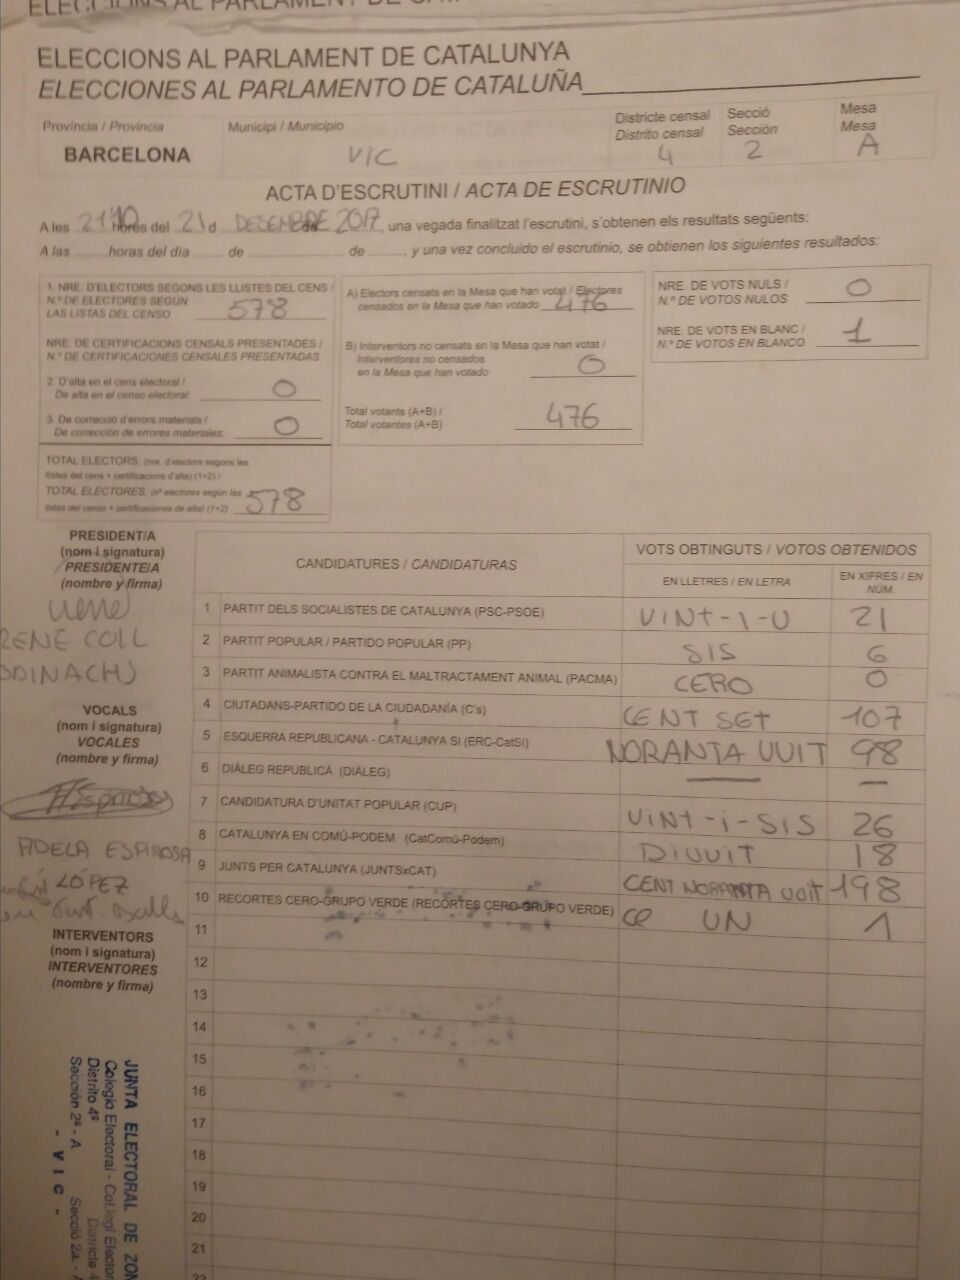 ELECCIONS AL PARLAMENT DE CATALUNYA
ELECCIONES AL PARLAMENTO DE CATALUÑA
Província / Provincia
BARCELONA
Municipi / Municipio
VIC
Districte censal
Distrito censal
4
Secció
Sección
2
Mesa
Mesa
A
ACTA D'ESCRUTINI / ACTA DE ESCRUTINIO
A les 21'40 hores del 21 d DESEMBRE 2017, una vegada finalitzat l'escrutini, s'obtenen els resultats següents:
A las ......... horas del día ....... de ...................... de ........, y una vez concluido el escrutinio, se obtienen los siguientes resultados:
1. NRE. D'ELECTORS SEGONS LES LLISTES DEL CENS /
N.º DE ELECTORES SEGÚN
LAS LISTAS DEL CENSO 578
NRE. DE CERTIFICACIONS CENSALS PRESENTADES /
N.º DE CERTIFICACIONES CENSALES PRESENTADAS
2. D'alta en el cens electoral /
De alta en el censo electoral: 0
3. De correcció d'errors materials /
De corrección de errores materiales: 0
TOTAL ELECTORS: (nre. d'electors segons les
llistes del cens + certificacions d'alta) (1+2) /
TOTAL ELECTORES: (nº electores según las
listas del censo + certificaciones de alta) (1+2) 578
A) Electors censats en la Mesa que han votat / Electores
censados en la Mesa que han votado 476
B) Interventors no censats en la Mesa que han votat /
Interventores no censados
en la Mesa que han votado 0
Total votants (A+B) /
Total votantes (A+B) 476
NRE. DE VOTS NULS /
N.º DE VOTOS NULOS 0
NRE. DE VOTS EN BLANC /
N.º DE VOTOS EN BLANCO 1
PRESIDENT/A
(nom i signatura)
PRESIDENTE/A
(nombre y firma)
Irene
RENE COLL
ODINACH
VOCALS
(nom i signatura)
VOCALES
(nombre y firma)
ADELA ESPINOSA
LÓPEZ
INTERVENTORS
(nom i signatura)
INTERVENTORES
(nombre y firma)
CANDIDATURES / CANDIDATURAS
VOTS OBTINGUTS / VOTOS OBTENIDOS
EN LLETRES / EN LETRA
EN XIFRES / EN NÚM.
1 PARTIT DELS SOCIALISTES DE CATALUNYA (PSC-PSOE) VINT-I-U 21
2 PARTIT POPULAR / PARTIDO POPULAR (PP) SIS 6
3 PARTIT ANIMALISTA CONTRA EL MALTRACTAMENT ANIMAL (PACMA) CERO 0
4 CIUTADANS-PARTIDO DE LA CIUDADANÍA (C's) CENT SET 107
5 ESQUERRA REPUBLICANA - CATALUNYA SI (ERC-CatSí) NORANTA VUIT 98
6 DIÀLEG REPUBLICÀ (DIÀLEG) — —
7 CANDIDATURA D'UNITAT POPULAR (CUP) VINT-i-SIS 26
8 CATALUNYA EN COMÚ-PODEM (CatComú-Podem) DIVUIT 18
9 JUNTS PER CATALUNYA (JUNTSxCAT) CENT NORANTA VUIT 198
10 RECORTES CERO-GRUPO VERDE (RECORTES CERO-GRUPO VERDE) UN 1
11
12
13
14
15
16
17
18
19
20
21
22
JUNTA ELECTORAL DE ZON
Colegio Electoral - Col.legi Elector
Distrito 4º Districte 4
Sección 2ª - A Secció 2a. - A
- VIC -